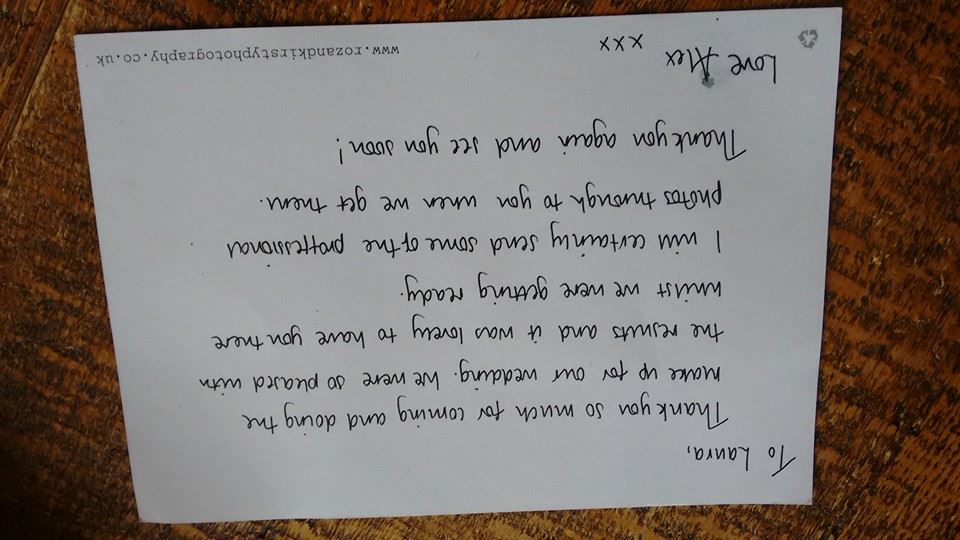 To Laura,
Thank you so much for coming and doing the
make up for our wedding. We were so pleased with
the results and it was lovely to have you there
whilst we were getting ready.
I will certainly send some of the proffessional
photos through to you when we get them.
Thank you again and see you soon!
Love Alex
xxx
www.rozandkirstyphotography.co.uk